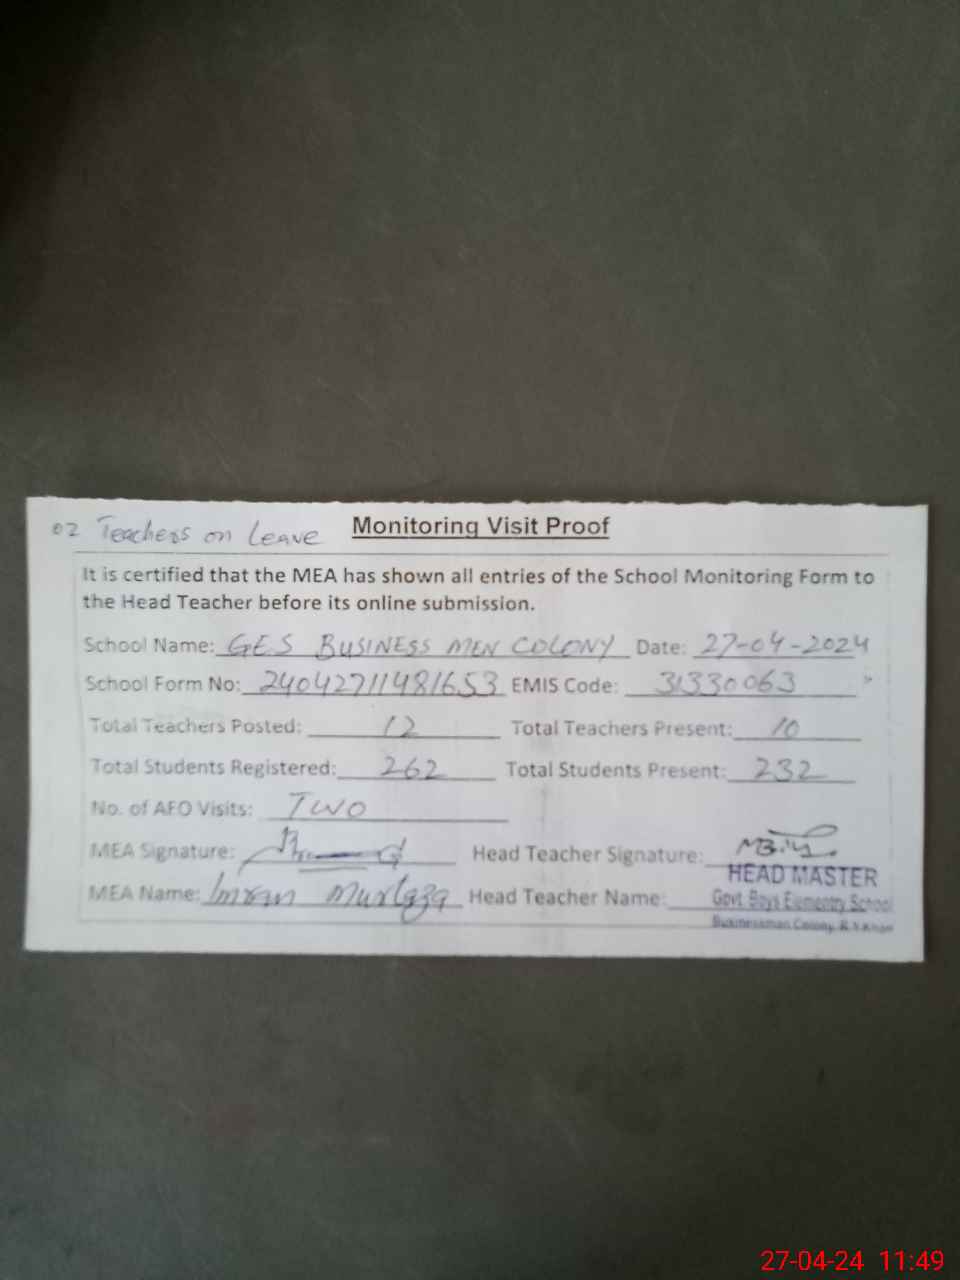 02 Teachers on Leave Monitoring Visit Proof
It is certified that the MEA has shown all entries of the School Monitoring Form to
the Head Teacher before its online submission.
School Name: GES BUSINESS MEN COLONY Date: 27-04-2024
School Form No: 24042711481653 EMIS Code: 31330063
Total Teachers Posted: 12 Total Teachers Present: 10
Total Students Registered: 262 Total Students Present: 232
No. of AEO Visits: Two
MEA Signature: Head Teacher Signature:
HEAD MASTER
MEA Name: Imran Murtaza Head Teacher Name: Govt. Boys Elementry School
Businessman Colony, R.Y.Khan
27-04-24 11:49